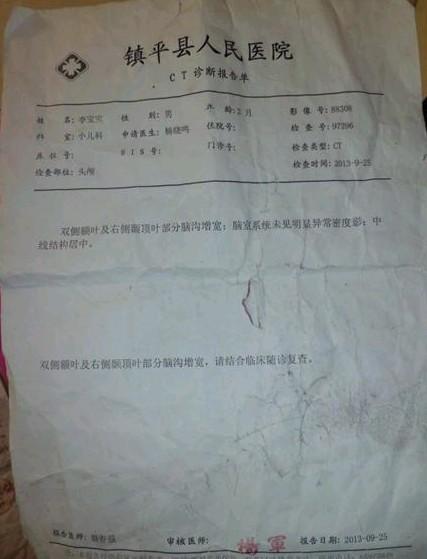 镇平县人民医院
CT 诊断报告单
姓 名:李宝宝 性 别:男 年 龄:2月 影像号:88308
科 室:小儿科 申请医生:杨晓鸣 住院号: 检查号:97296
床位号: HIS号: 门诊号: 检查类型:CT
检查部位:头颅 检查时间:2013-9-25
双侧额叶及右侧颞顶叶部分脑沟增宽;脑室系统未见明显异常密度影;中
线结构居中。
双侧额叶及右侧颞顶叶部分脑沟增宽,请结合临床随诊复查。
报告医师: 审核医师: 楊軍 报告日期:2013-09-25